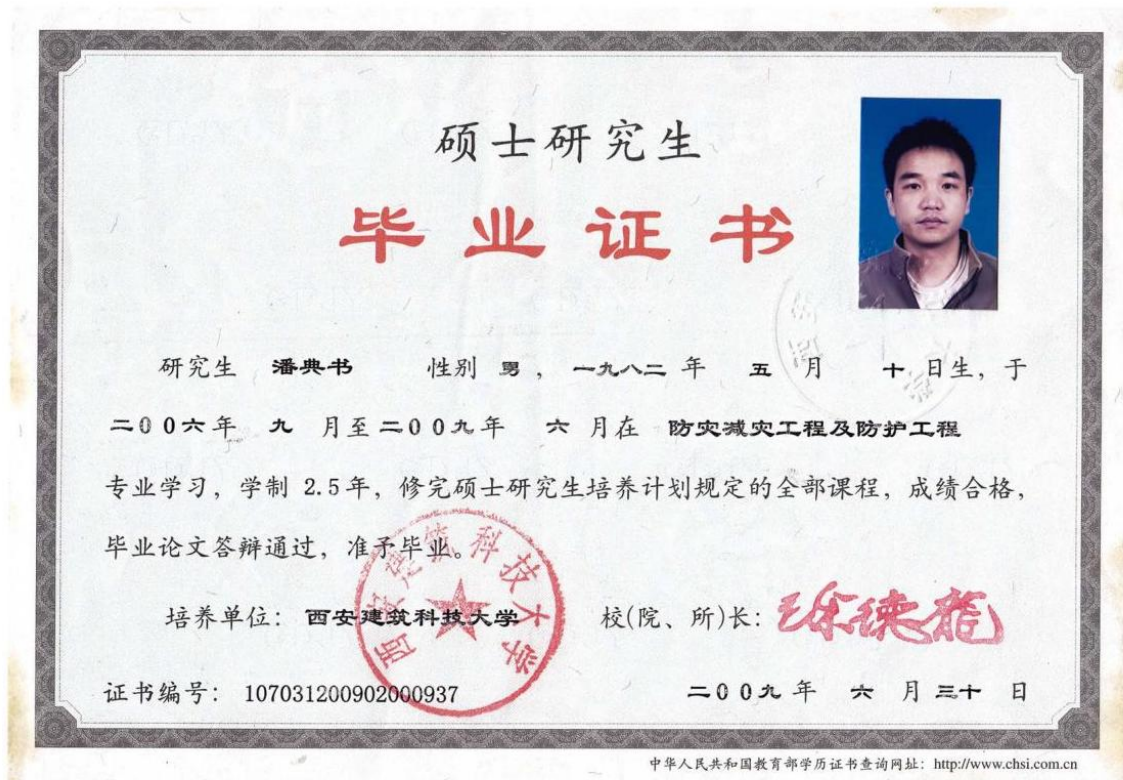 硕士研究生
毕业证书
研究生 潘典书 性别 男，一九八二 年 五 月 十 日生，于
二00六年 九 月至二00九年 六 月在 防灾减灾工程及防护工程
专业学习，学制 2.5年，修完硕士研究生培养计划规定的全部课程，成绩合格，
毕业论文答辩通过，准予毕业。
西安建筑科技大学
培养单位：西安建筑科技大学 校(院、所)长：徐德龙
证书编号：107031200902000937 二00九 年 六 月 三十 日
中华人民共和国教育部学历证书查询网址：http://www.chsi.com.cn